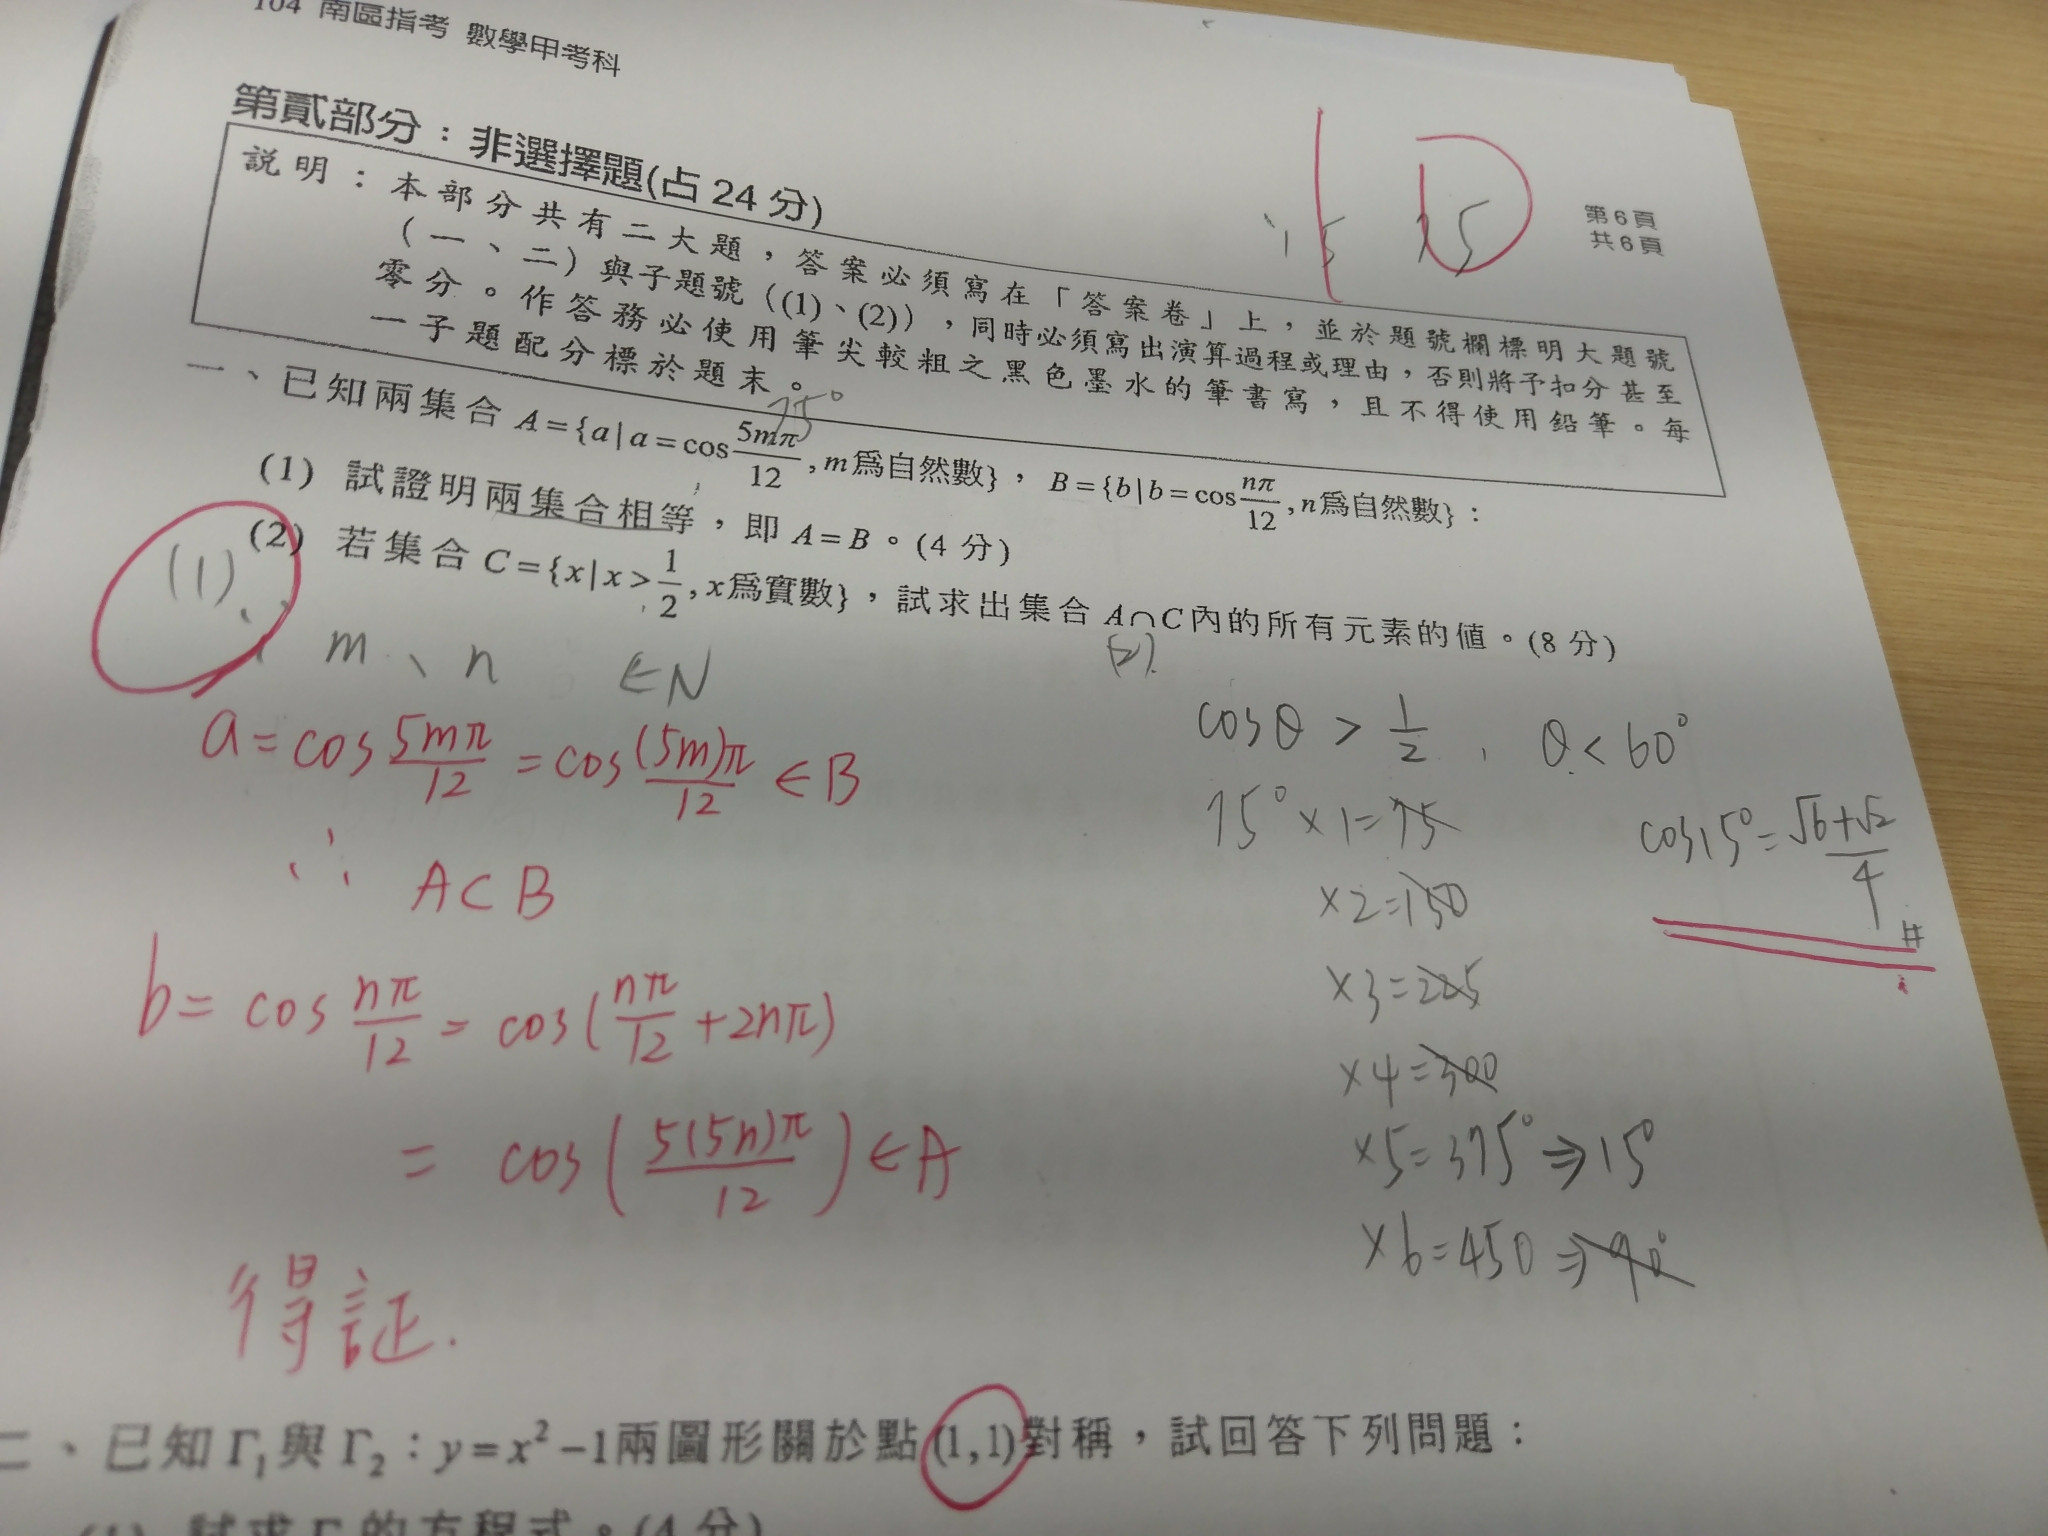 104 南區指考 數學甲考科
第貳部分：非選擇題(占 24 分)
15 15
第6頁
共6頁
說明：本部分共有二大題，答案必須寫在「答案卷」上，並於題號欄標明大題號
（一、二）與子題號（(1)、(2)），同時必須寫出演算過程或理由，否則將予扣分甚至
零分。作答務必使用筆尖較粗之黑色墨水的筆書寫，且不得使用鉛筆。每
一子題配分標於題末。
75°
一、已知兩集合 A={a|a=cos 5mπ/12, m為自然數}，B={b|b=cos nπ/12, n為自然數}：
(1) 試證明兩集合相等，即 A=B。(4 分)
(2) 若集合 C={x|x>1/2, x為實數}，試求出集合 A∩C內的所有元素的值。(8 分)
(1)
∵ m、n ∈N
a=cos 5mπ/12 =cos (5m)π/12 ∈B
∴ A⊂B
b= cos nπ/12 = cos(nπ/12 +2nπ)
= cos(5(5n)π/12)∈A
得証.
(2).
cosθ > 1/2 , θ<60°
75°×1=75
×2=150
×3=225
×4=300
×5=375°⇒15°
×6=450⇒90°
cos15°=√6+√2/4 #
二、已知 Γ₁與 Γ₂：y=x²−1兩圖形關於點(1,1)對稱，試回答下列問題：
(1) 試求 Γ的方程式。(4 分)